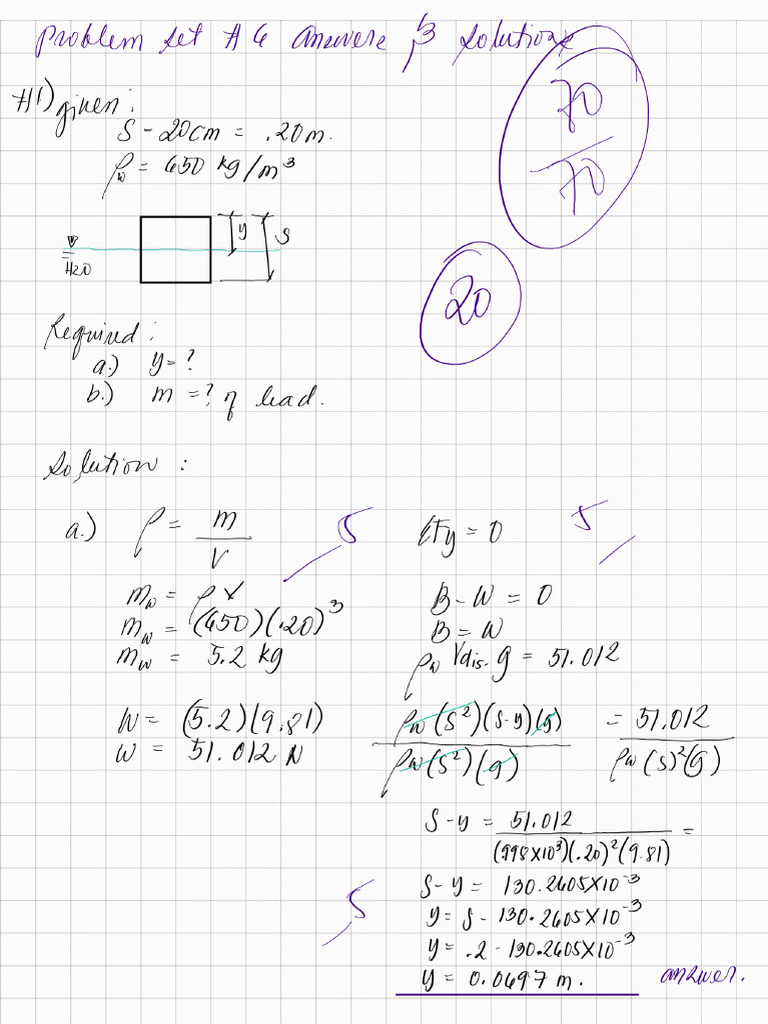 Problem Set #6 Answers & Solutions
70
70
#1) given:
S - 20cm = .20m.
ρw = 650 kg/m³
y
S
H2O
20
Required:
a.) y = ?
b.) m = ? of lead.
Solution:
a.) ρ = m / V
5
mw = ρV
mw = (650)(.20)³
mw = 5.2 kg
W = (5.2)(9.81)
W = 51.012 N
ΣFy = 0
5
B - W = 0
B = W
ρw Vdis. g = 51.012
ρw (S²)(S-y)(g) / ρw (S²)(g) = 51.012 / ρw (S)²(g)
S - y = 51.012 / (998X10³)(.20)²(9.81) =
S - y = 130.2605X10⁻³
5
y = S - 130.2605X10⁻³
y = .2 - 130.2605X10⁻³
y = 0.0697 m. answer.